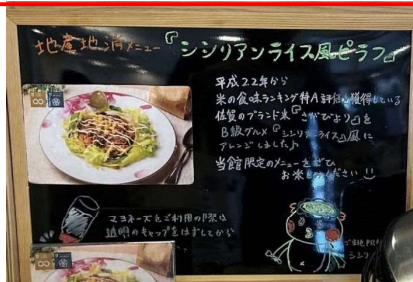 地産地消メニュー『シシリアンライス風ピラフ』
平成22年から
米の食味ランキング特A評価を獲得している
佐賀のブランド米『さがびより』を
B級グルメ『シシリアンライス』風に
アレンジしました♪
当館限定のメニューをぜひ
お米 ください!!
マヨネーズをご利用の際は
透明のキャップをはずしてから
シシリ